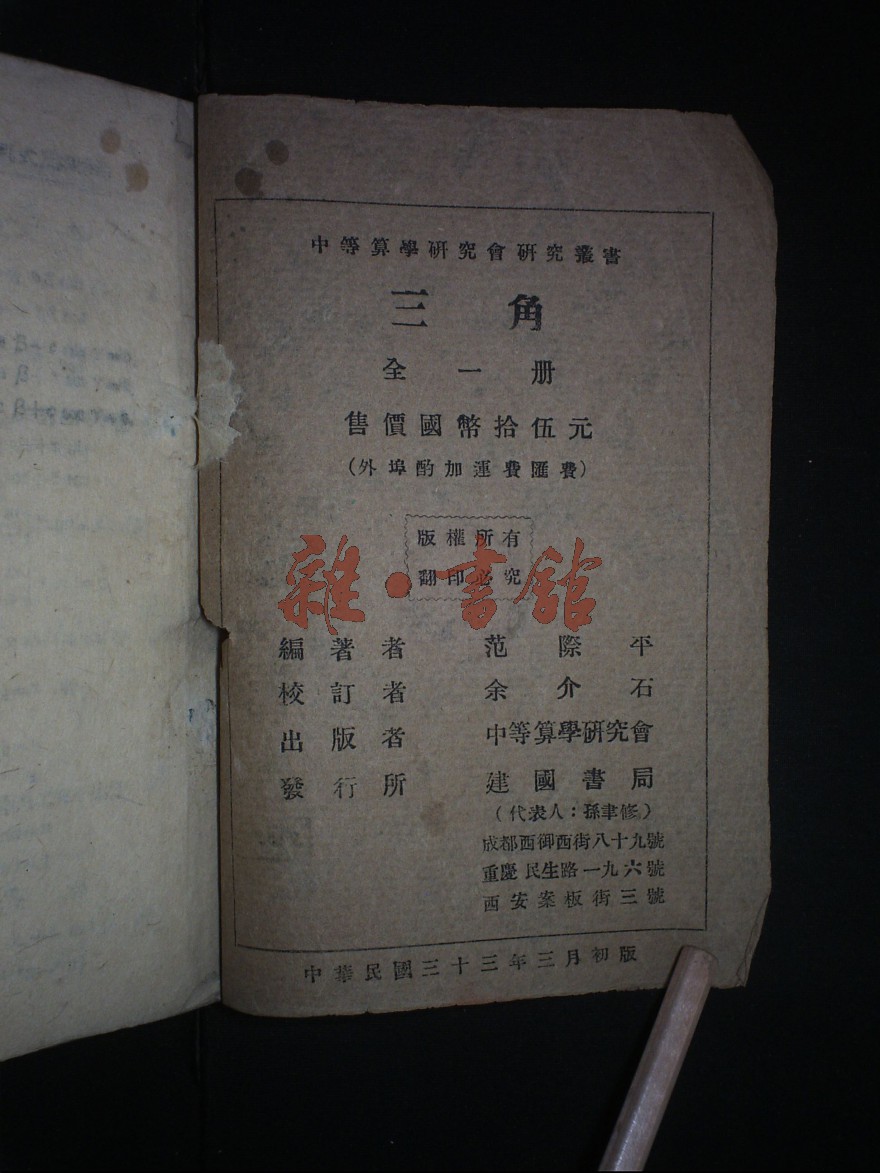 中等算學研究會研究叢書
三角
全一册
售價國幣拾伍元
(外埠酌加運費匯費)
版權所有
翻印必究
雜·書館
編著者 范際平
校訂者 余介石
出版者 中等算學研究會
發行所 建國書局
(代表人：孫聿修)
成都西御西街八十九號
重慶民生路一九六號
西安案板街三號
中華民國三十三年三月初版